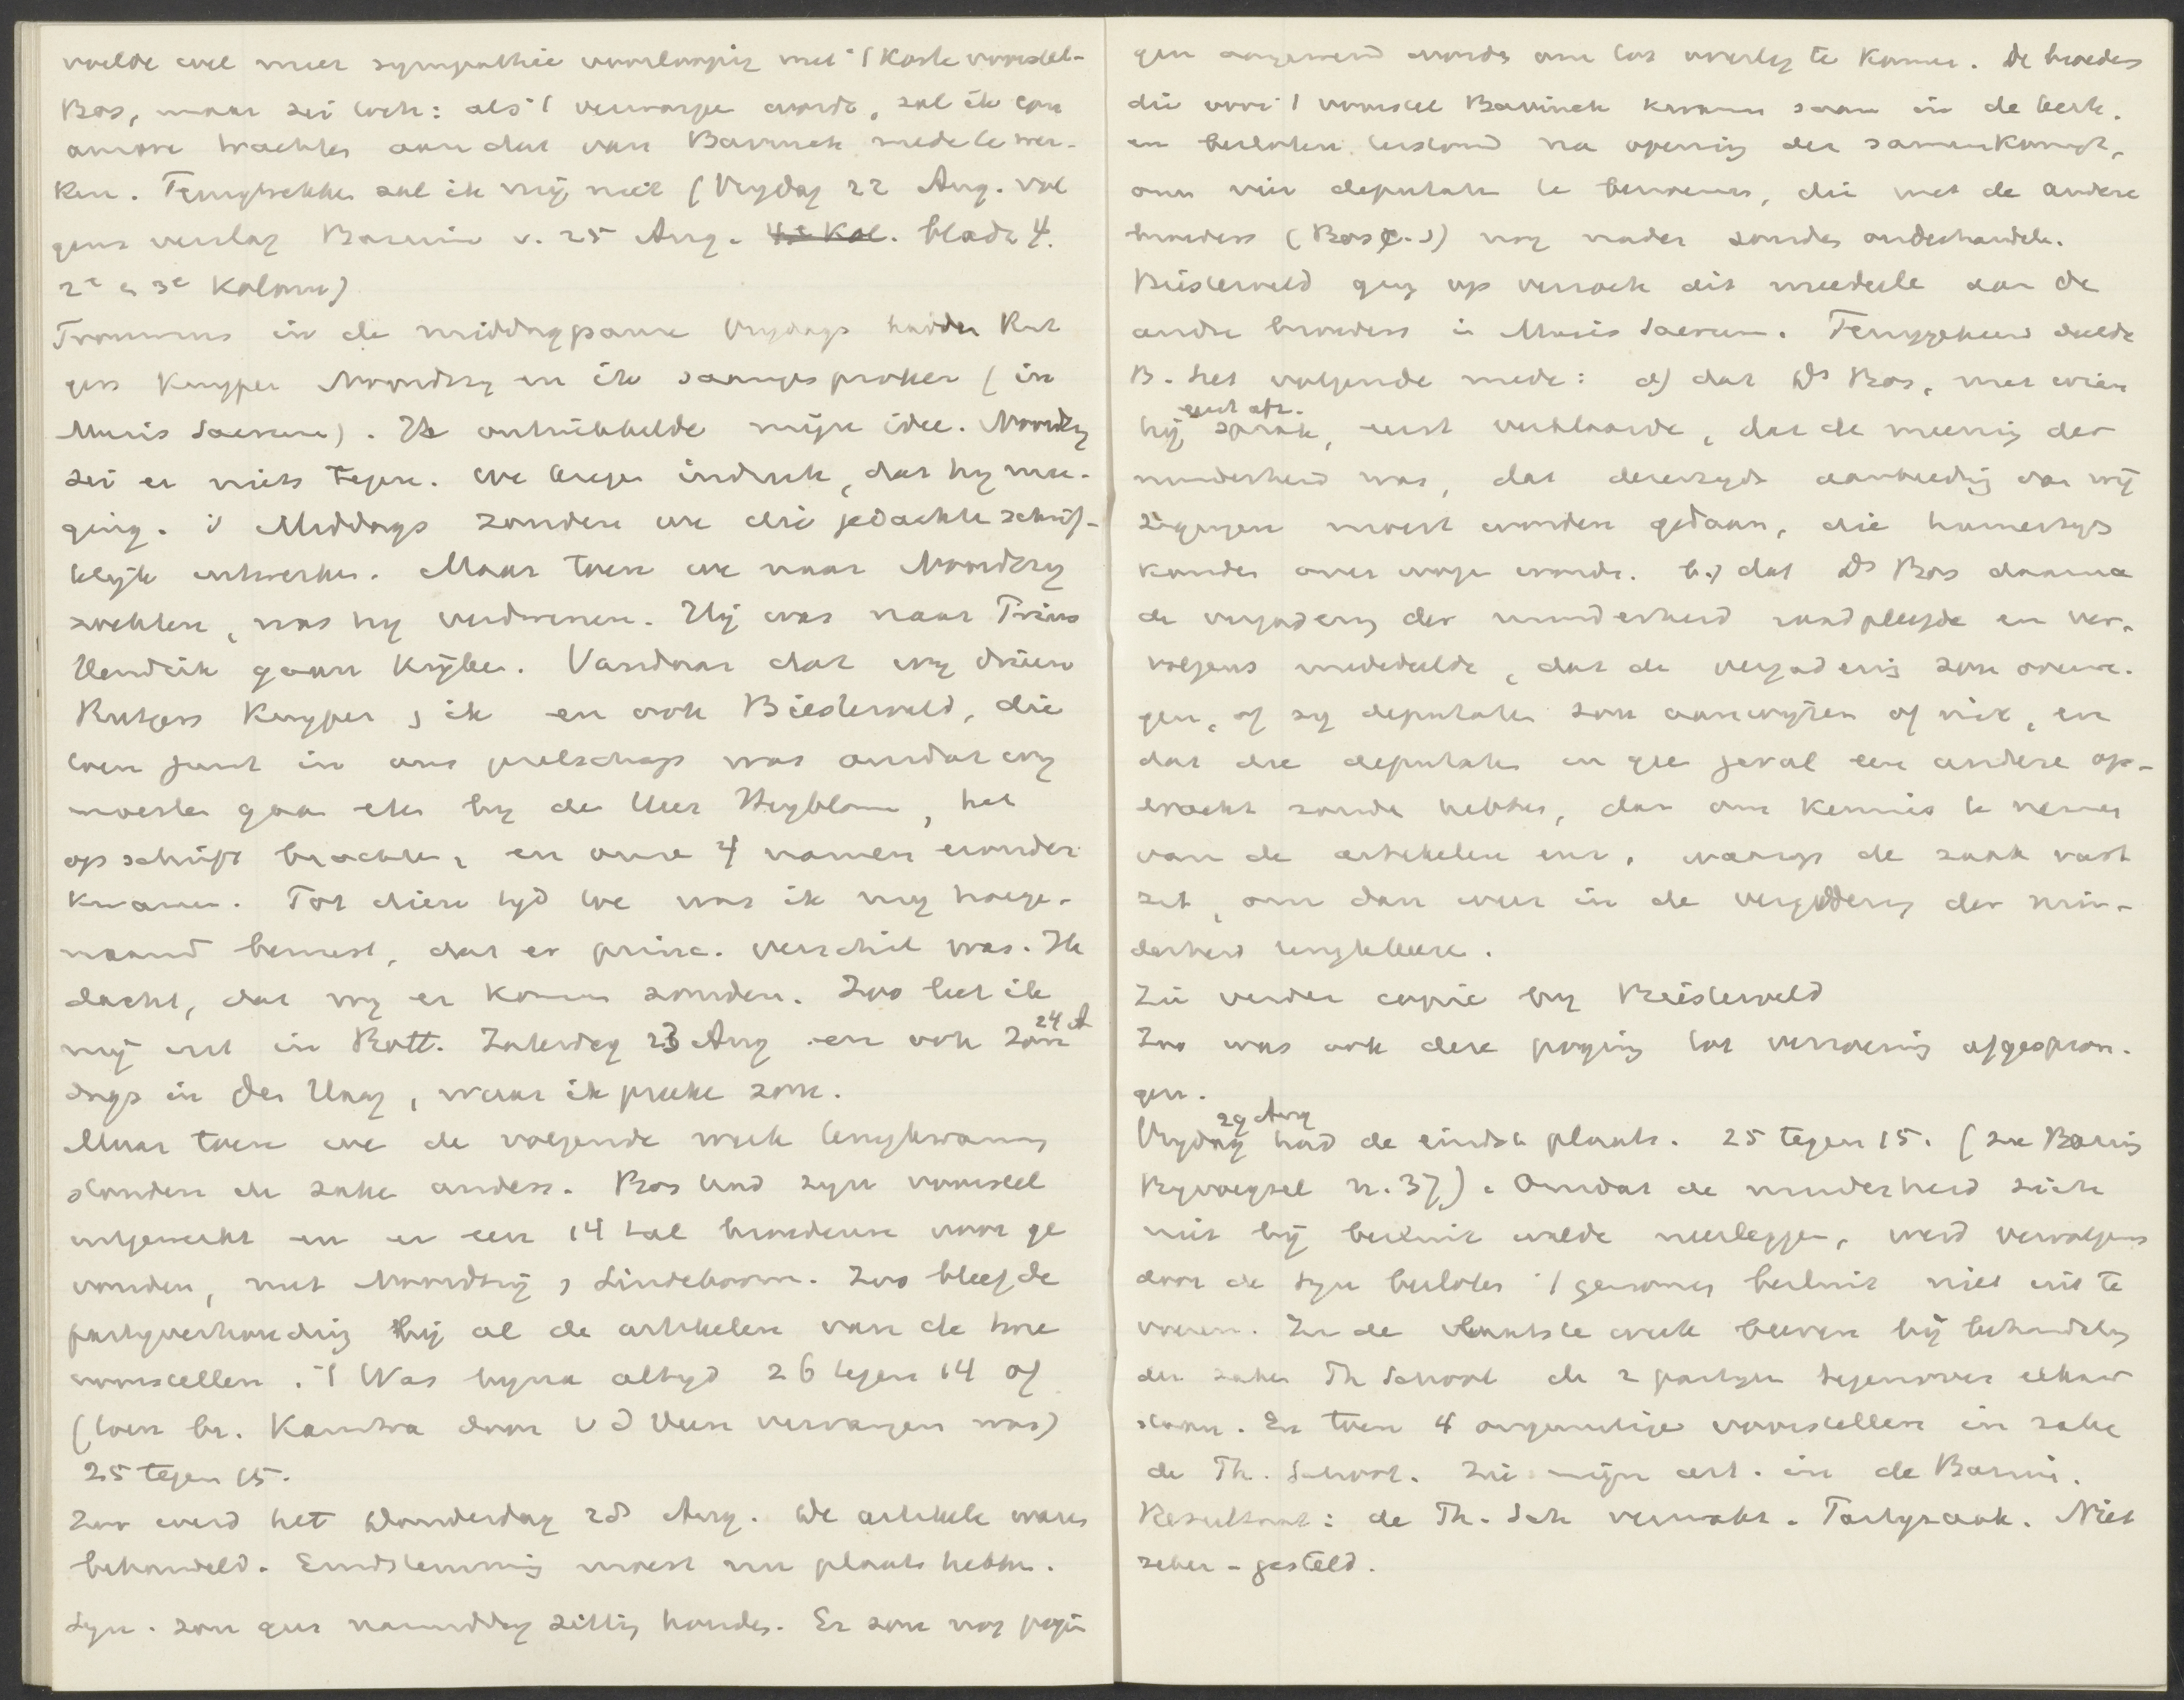 voelde wel meer sympathie voorloopig met 't Korte voorstel-
Bos, maar zei toch: als 't verworpen wordt, zal ik con
amore trachten aan dat van Bavinck mede te wer-
ken. Terugtrekken zal ik mij niet (Vrijdag 22 Aug. vol
gens verslag Bazuin v. 25 Aug. 4e Kol. bladz 4.
2e en 3e Kolom)
Trouwens in de middagpauze Vrijdags hadden Rut
gers Kuyper Noordtzij en ik saamgesproken (in
Musis Sacrum). Ik ontwikkelde mijn idee. Noordtzij
zei er niets tegen. We kregen indruk, dat hij mee-
ging. 's Middags zouden we die gedachte schrif-
telijk uitwerken. Maar toen we naar Noordtzij
zochten, was hij verdwenen. Hij was naar Prins
Hendrik gaan kijken. Vandaar dat wij drieën
Rutgers Kuyper, ik en ook Biesterveld, die
toen juist in ons gezelschap was omdat wij
moesten gaan eten bij de Heer Heyblom, het
op schrift brachten, en onze 4 namen eronder
kwamen. Tot dien tijd toe was ik mij hoege-
naamd bewust, dat er princ. verschil was. Ik
dacht, dat wij er komen zouden. Zoo liet ik
mij uit in Rott. Zaterdag 23 Aug en ook Zon 24 A
dags in Den Haag, waar ik preken zou.
Maar toen we de volgende week terugkwamen
stonden de zaken anders. Bos had zijn voorstel
uitgewerkt en er een 14 tal broederen voor ge
vonden, met Noordtzij, Lindeboom. Zoo bleef de
partijverhouding bij al de artikelen van de twee
voorstellen. 't Was bijna altijd 26 tegen 14 of
(toen br. Kamstra door v d Veen vervangen was)
25 tegen 15.
Zoo werd het Donderdag 28 Aug. De artikelen waren
behandeld. Eindstemming moest nu plaats hebben.
Syn. zou geen namiddag zitting houden. Er zou nog pogin
gen aangewend worden om tot overleg te komen. De broeders
die voor 't voorstel Bavinck kwamen saam in de kerk.
en besloten terstond na opening der samenkomst,
om vier deputaten te benoemen, die met de andere
broeders (Bos c.s) nog nader zouden onderhandelen.
Biesterveld ging op verzoek dit meedeelen aan de
andre broeders in Musis Sacrum. Teruggekeerd deelde
B. het volgende mede: a) dat Ds Bos, met wien
hij sprak, eerst verklaarde, dat de meening der
minderheid was, dat derzijds aanbieding van wij
zigingen moest worden gedaan, die hunnerzijds
konden overwogen worden. b.) dat Ds Bos daarna
de vergadering der minderheid raadpleegde en ver-
volgens mededeelde, dat de vergadering zou overwe-
gen, of zij deputaten zou aanwijzen of niet, en
dat die deputaten in geen geval een andere op-
dracht zouden hebben, dan om kennis te nemen
van de artikelen enz. waarop de zaak vast
zit, om dan weer in de vergadering der min-
derheid terugkeeren.
Zie verder copie bij Biesterveld
Zoo was ook deze poging tot verzoening afgespron-
gen.
Vrijdag 29 Aug had de eindst. plaats. 25 tegen 15. (zie Bazuin
Bijvoegsel n. 37). Omdat de minderheid zich
niet bij besluit wilde neerleggen, werd vervolgens
door de Syn besloten 't genomen besluit niet uit te
voeren. In de laatste week bleven bij behandeling
der zaken Th School de 2 partijen tegenover elkaar
staan. En toen 4 ongunstige voorstellen in zake
de Th. School. Zie mijn art. in de Bazuin.
Resultaat: de Th. Sch verzwakt. Partijzaak. Niet
zeker-gesteld.